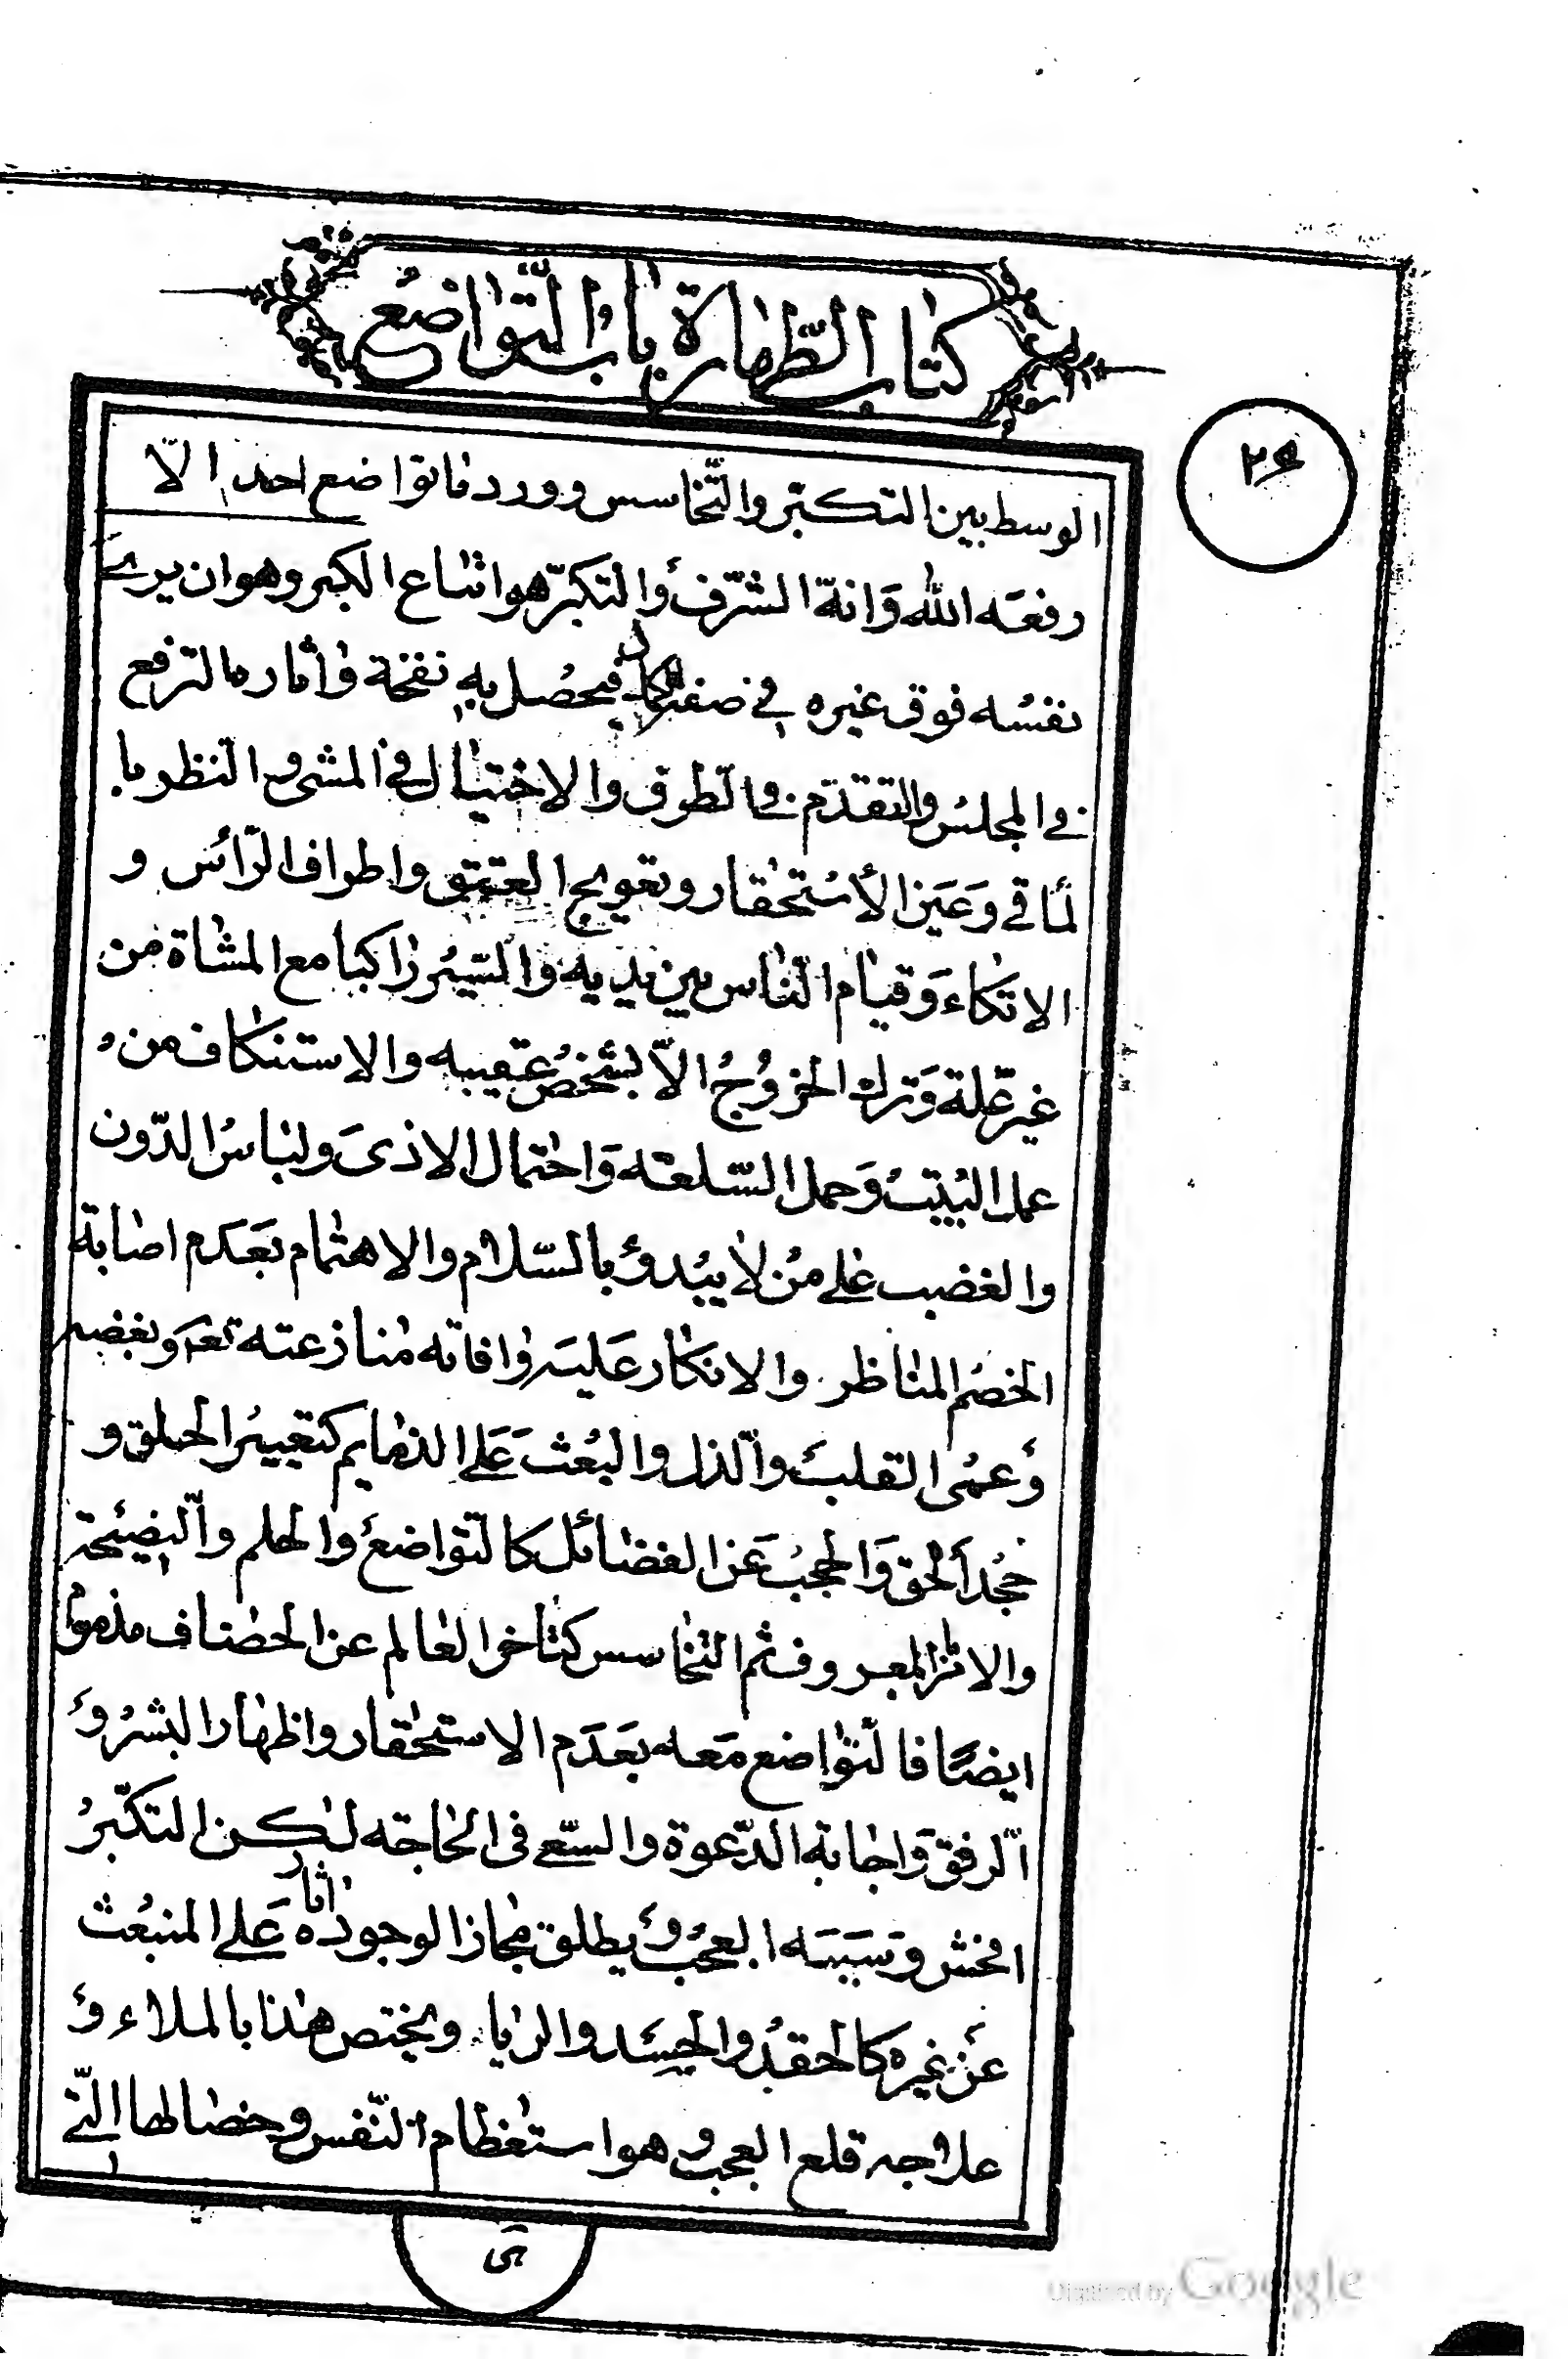 كتاب الطهارة باب التواضع
٢٤
الوسط بين التكبّر والتّخاسس وورد ما تواضع احد الّا
رفعه الله وانة الشّرف والتكبّر هو اتباع الكبر وهو ان يرى
نفسه فوق غيره في صفة كمال فيحصل به نفخة واثاره الترفع
في المجلس والتقدّم في الطرق والاختيال في المشى والنظر بما
لمأقى وعين الأستحقار وتعويج العتيق واطراف الرّأس و
الاتكاء وقيام النّاس بين يديه والسّير راكبا مع المشاة من
غير علّة وترك الخروج الّا بشخص عقيبه والاستنكاف من
عمل البيت وحمل السّلعة واحتمال الاذى ولباس الدّون
والغضب على من لا يبدؤ بالسّلام والاهتمام بعدم اصابة
الخصم المناظر والانكار عليه وافاته منازعته تعه وبغضه
وعمى القلب والذل والبعث على الذمايم كتغيير الخلق و
جحد الحق والحجب عن الفضائل كالتّواضع والحلم والنصيحة
والامر المعروف ثم التخاسس كتاخر العالم عن الخصاف مذموم
ايضا فالتّواضع معه بعدم الاستحقار واظهار البشر و
الرفق واجابة الدّعوة والسّعى فى الحاجة لكن التكبّر
افحش وسببه العجب ويطلق مجازا لوجود اثاره على المنبعث
عن غيره كالحقد والحسد والريا ويختص هذا بالملاء و
علاجه قلع العجب وهو استعظام النّفس وخصالها الّتى
هى
Digitized by Google